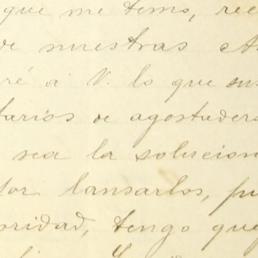 que me temo, rec
de nuestras A
ré á V. lo que su
tarios de agostaders
sea la solucion
por lansarlos, pu
oridad, tengo que